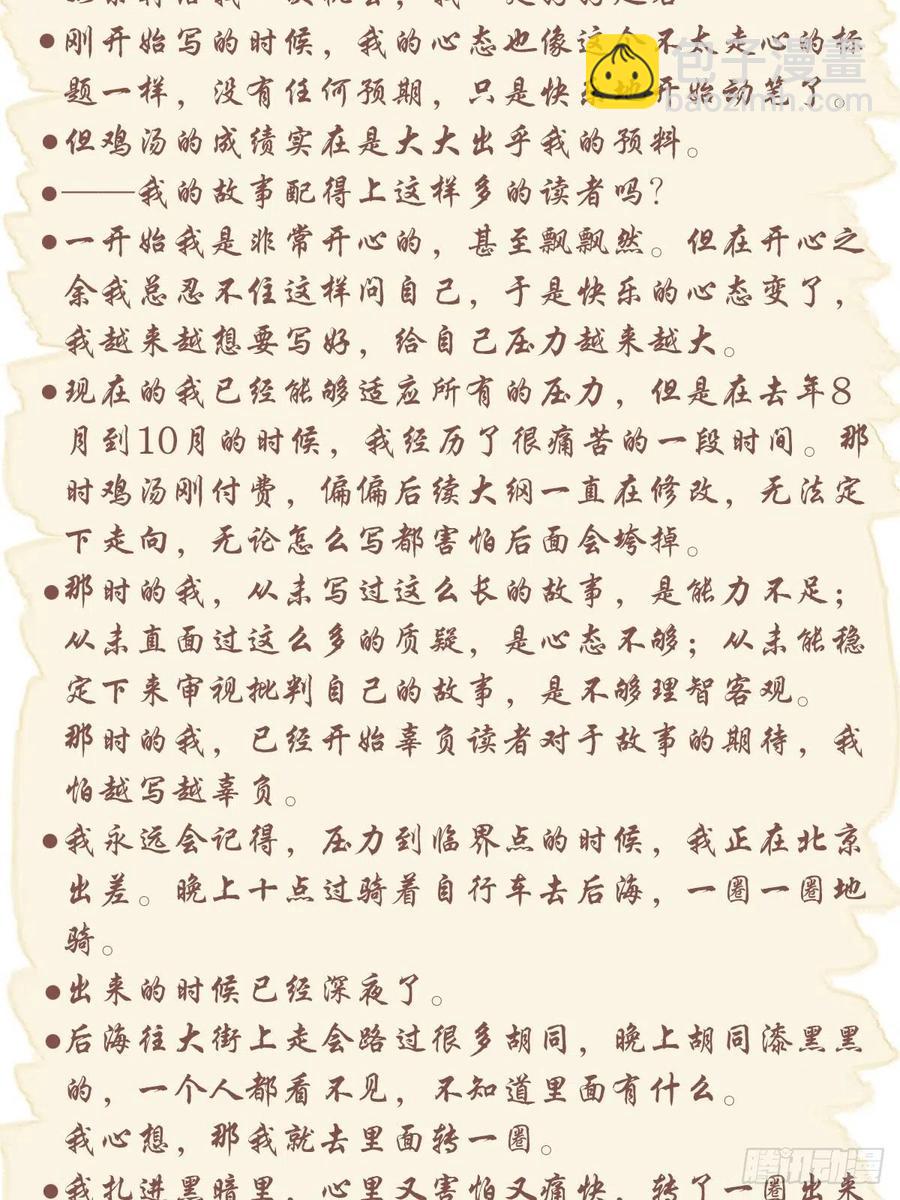 刚开始写的时候，我的心态也像这个不太走心的标
题一样，没有任何预期，只是快乐地开始动笔了。
包子漫畫
baozimh.com
但鸡汤的成绩实在是大大出乎我的预料。
——我的故事配得上这样多的读者吗？
一开始我是非常开心的，甚至飘飘然。但在开心之
余我总忍不住这样问自己，于是快乐的心态变了，
我越来越想要写好，给自己压力越来越大。
现在的我已经能够适应所有的压力，但是在去年8
月到10月的时候，我经历了很痛苦的一段时间。那
时鸡汤刚付费，偏偏后续大纲一直在修改，无法定
下走向，无论怎么写都害怕后面会垮掉。
那时的我，从未写过这么长的故事，是能力不足；
从未直面过这么多的质疑，是心态不够；从未能稳
定下来审视批判自己的故事，是不够理智客观。
那时的我，已经开始辜负读者对于故事的期待，我
怕越写越辜负。
我永远会记得，压力到临界点的时候，我正在北京
出差。晚上十点过骑着自行车去后海，一圈一圈地
骑。
出来的时候已经深夜了。
后海往大街上走会路过很多胡同，晚上胡同漆黑黑
的，一个人都看不见，不知道里面有什么。
我心想，那我就去里面转一圈。
我扎进黑暗里，心里又害怕又痛快，转了一圈出来
腾讯动漫